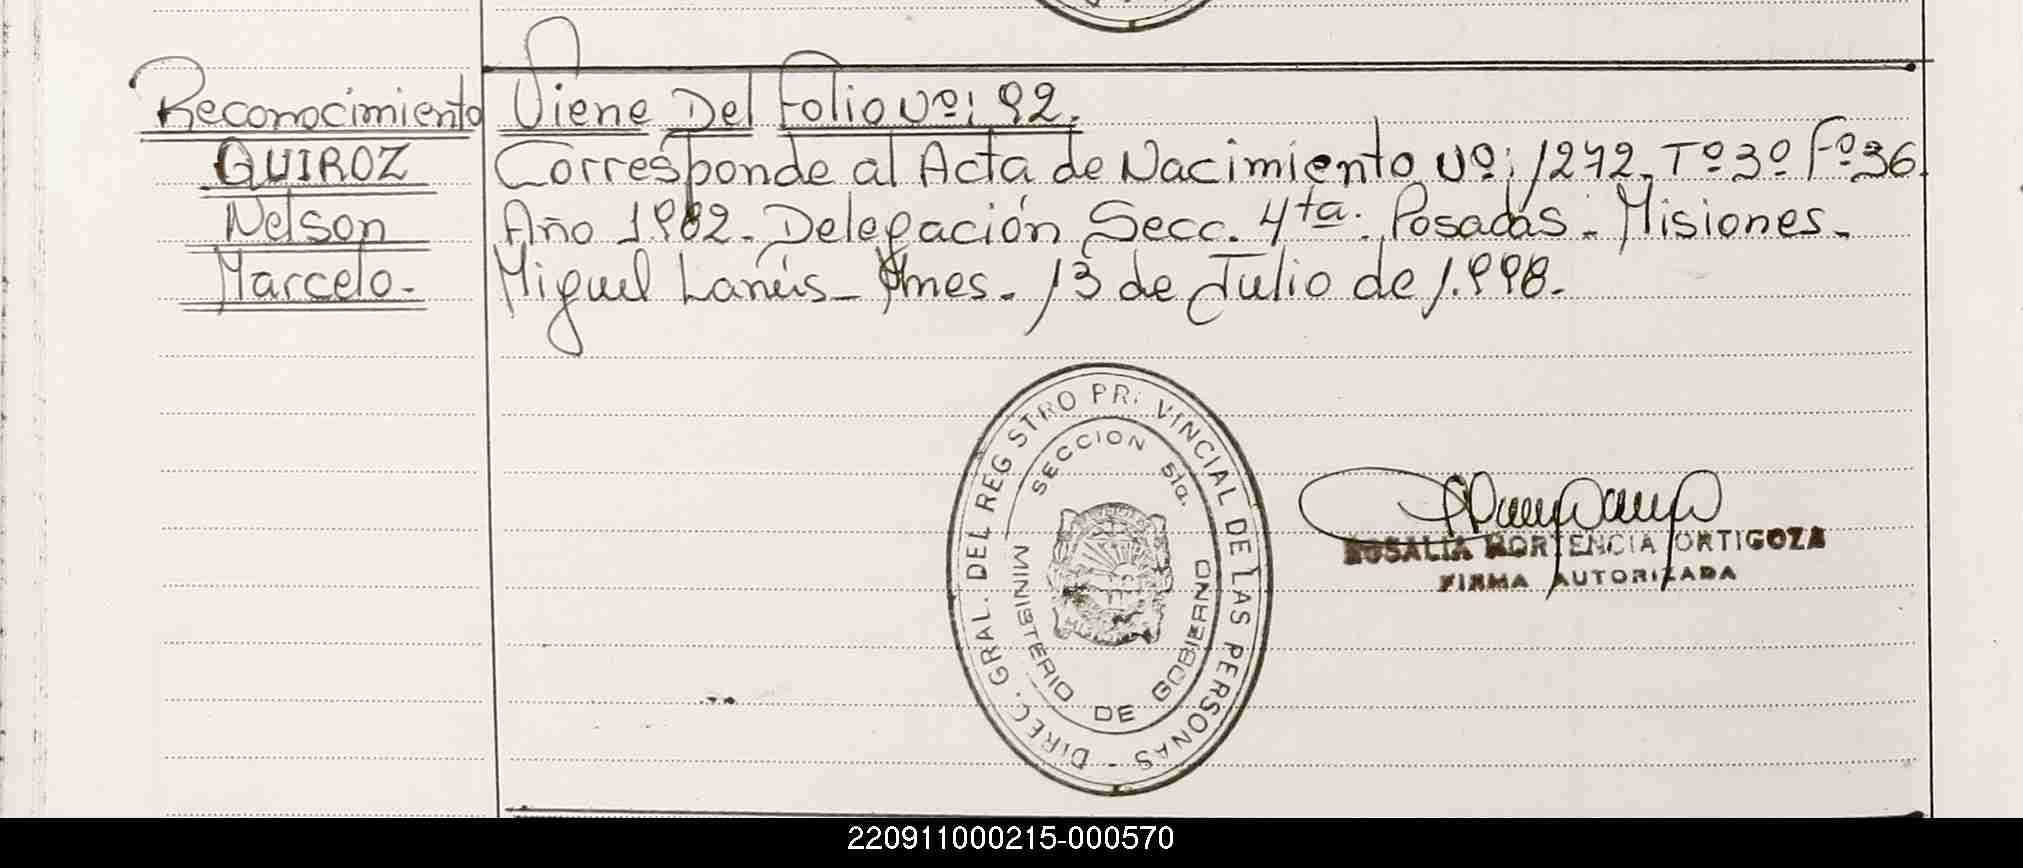 Reconocimiento
QUIROZ
Nelson
Marcelo.-
Viene Del Folio Nº: 92.
Corresponde al Acta de Nacimiento Nº: 1272. Tº 3º Fº 36.
Año 1.982.- Delegación Secc. 4ta. Posadas.- Misiones.-
Miguel Lanús.- Mnes.- 13 de Julio de 1.998.-
DIREC. GRAL. DEL REGISTRO PROVINCIAL DE LAS PERSONAS -
SECCION 5ta.
MINISTERIO DE GOBIERNO
ROSALIA HORTENCIA ORTIGOZA
FIRMA AUTORIZADA
220911000215-000570